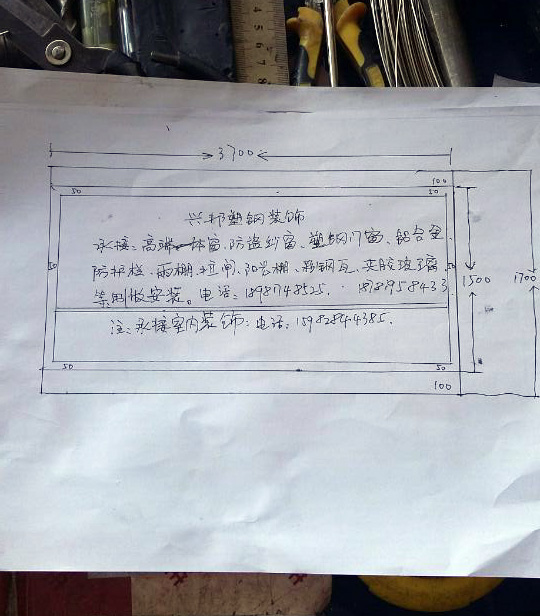 4 5 6 7 8
3700
100
50 50
兴邦塑钢装饰
承接:高端一体窗、防盗纱窗、塑钢门窗、铝合金、
50 50
防护栏、雨棚、拉闸、阳光棚、彩钢瓦、夹胶玻璃
1500 1700
等制做安装。电话:1898748525.
注:承接室内装饰:电话:15982844385.
50 50
100